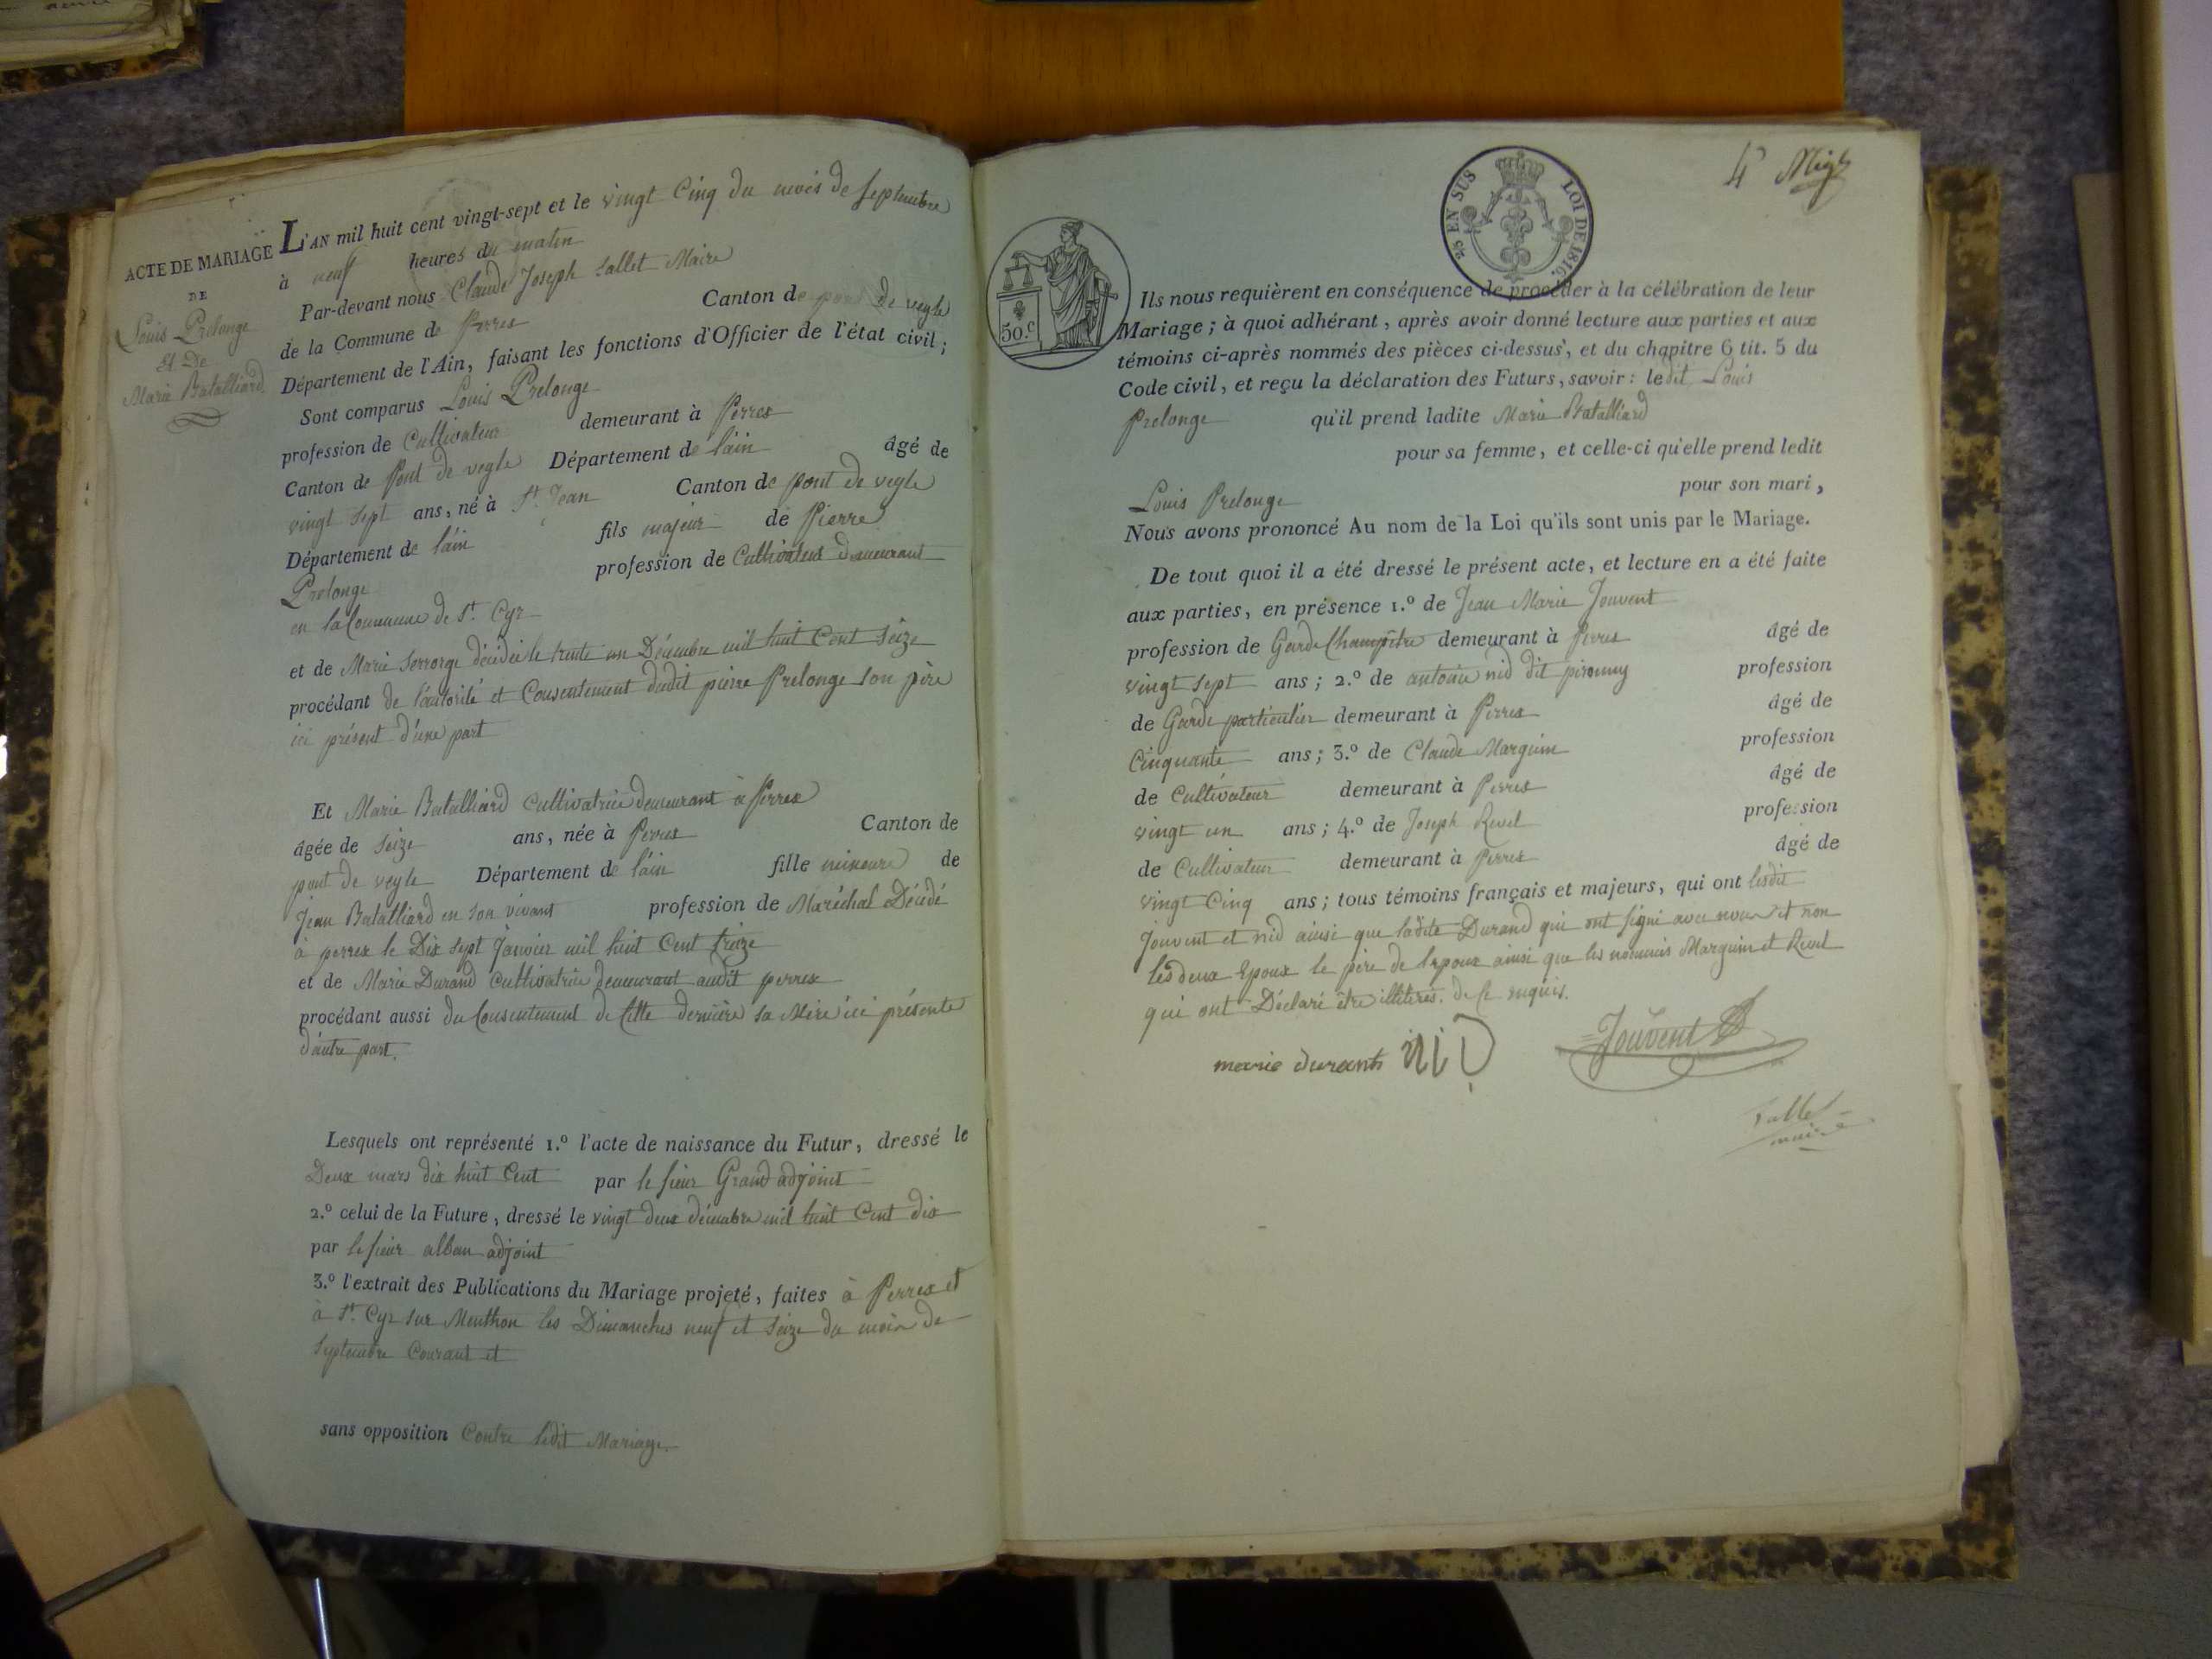 ACTE DE MARIAGE
DE
Louis Prelonge
Et De
Marie Batalliard
L'AN mil huit cent vingt-sept et le vingt Cinq du mois de septembre
à neuf heures du matin
Par-devant nous Claude Joseph Sallet Maire
de la Commune de Perrex Canton de pont de veyle
Département de l'Ain, faisant les fonctions d'Officier de l'état civil;
Sont comparus Louis Prelonge
profession de Cultivateur demeurant à Perrex
Canton de Pont de veyle Département de l'ain âgé de
vingt sept ans, né à St. Jean Canton de pont de veyle
Département de l'ain fils majeur de Pierre
Prelonge profession de Cultivateur demeurant
en la Commune de St. Cyr
et de Marie décédée le trente un Décembre mil huit Cent Seize
procédant de l'autorité et Consentement dudit pierre Prelonge son père
ici présent d'une part
Et Marie Batalliard Cultivatrice demeurant à Perrex
âgée de seize ans, née à Perrex Canton de
pont de veyle Département de l'ain fille mineure de
Jean Batalliard en son vivant profession de Maréchal Décédé
à perrex le Dix sept Janvier mil huit Cent treize
et de Marie Durand Cultivatrice demeurant audit perrex
procédant aussi du Consentement de Cette dernière sa Mère ici présente
d'autre part.
Lesquels ont représenté 1.º l'acte de naissance du Futur, dressé le
Deux mars dix huit Cent par le sieur Grand adjoint
2.º celui de la Future, dressé le vingt deux décembre mil huit Cent dix
par le sieur alban adjoint
3.º l'extrait des Publications du Mariage projeté, faites à Perrex et
à St. Cyr sur Menthon les Dimanches neuf et seize du mois de
Septembre Courant et
sans opposition Contre ledit Mariage.
4e
25 EN SUS LOI DE 1816.
50.c
Ils nous requièrent en conséquence de procéder à la célébration de leur
Mariage; à quoi adhérant, après avoir donné lecture aux parties et aux
témoins ci-après nommés des pièces ci-dessus, et du chapitre 6 tit. 5 du
Code civil, et reçu la déclaration des Futurs, savoir: ledit Louis
Prelonge qu'il prend ladite Marie Batalliard
pour sa femme, et celle-ci qu'elle prend ledit
Louis Prelonge pour son mari,
Nous avons prononcé Au nom de la Loi qu'ils sont unis par le Mariage.
De tout quoi il a été dressé le présent acte, et lecture en a été faite
aux parties, en présence 1.º de Jean Marie Jouvent
profession de Garde Champêtre demeurant à Perrex âgé de
vingt sept ans; 2.º de antoine nid dit pirouny profession
de Garde particulier demeurant à Perrex âgé de
Cinquante ans; 3.º de Claude Marguin profession
de Cultivateur demeurant à Perrex âgé de
vingt un ans; 4.º de Joseph Revel profession
de Cultivateur demeurant à Perrex âgé de
vingt Cinq ans; tous témoins français et majeurs, qui ont lesdit
Jouvent et nid ainsi que ladite Durand qui ont signé avec nous et non
les deux Epoux le père de l'epoux ainsi que les nommés Marguin et Revel
qui ont Déclaré être illiterés. de ce enquis.
marie durant NID Jouvent
Sallet
maire